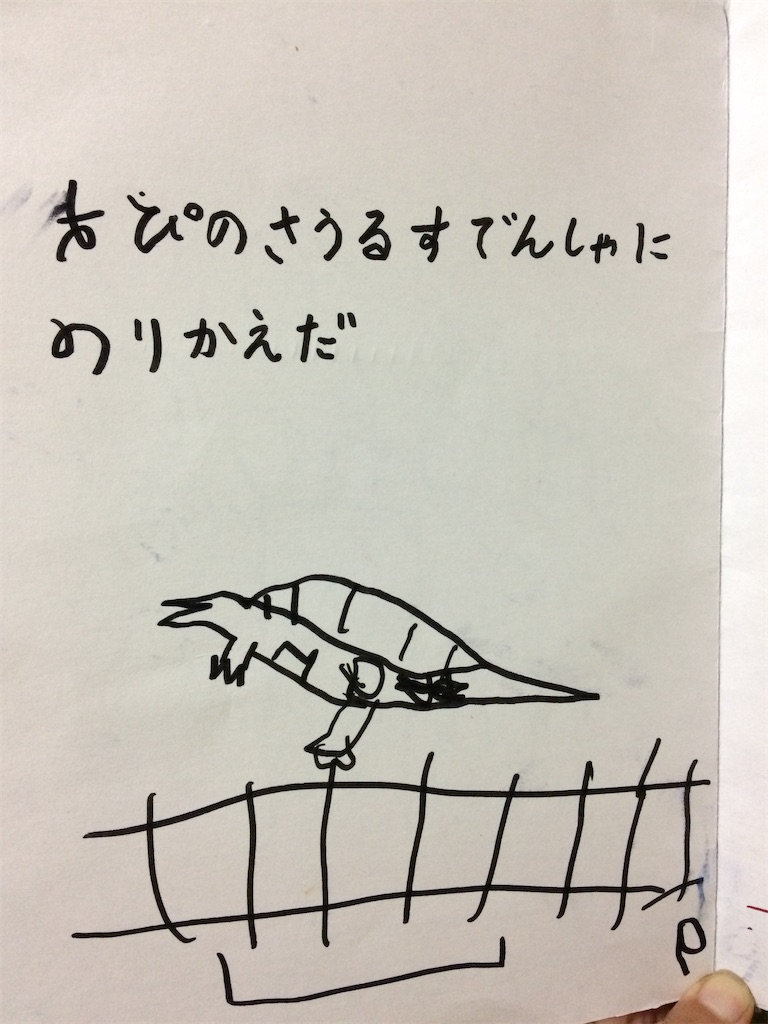 すぴのさうるすでんしゃに
のりかえだ